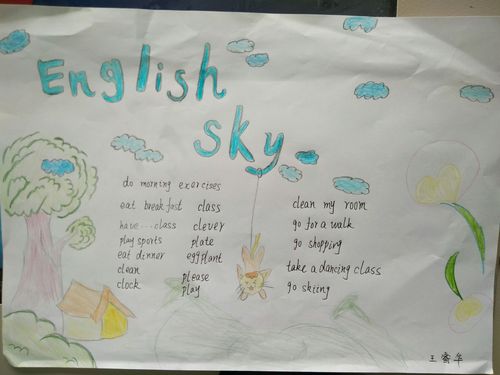 English
sky
do morning exercises
eat breakfast class
have...class clever
play sports plate
eat dinner eggplant
clean please
clock play
clean my room
go for a walk
go shopping
take a dancing class
go skiing
王 华